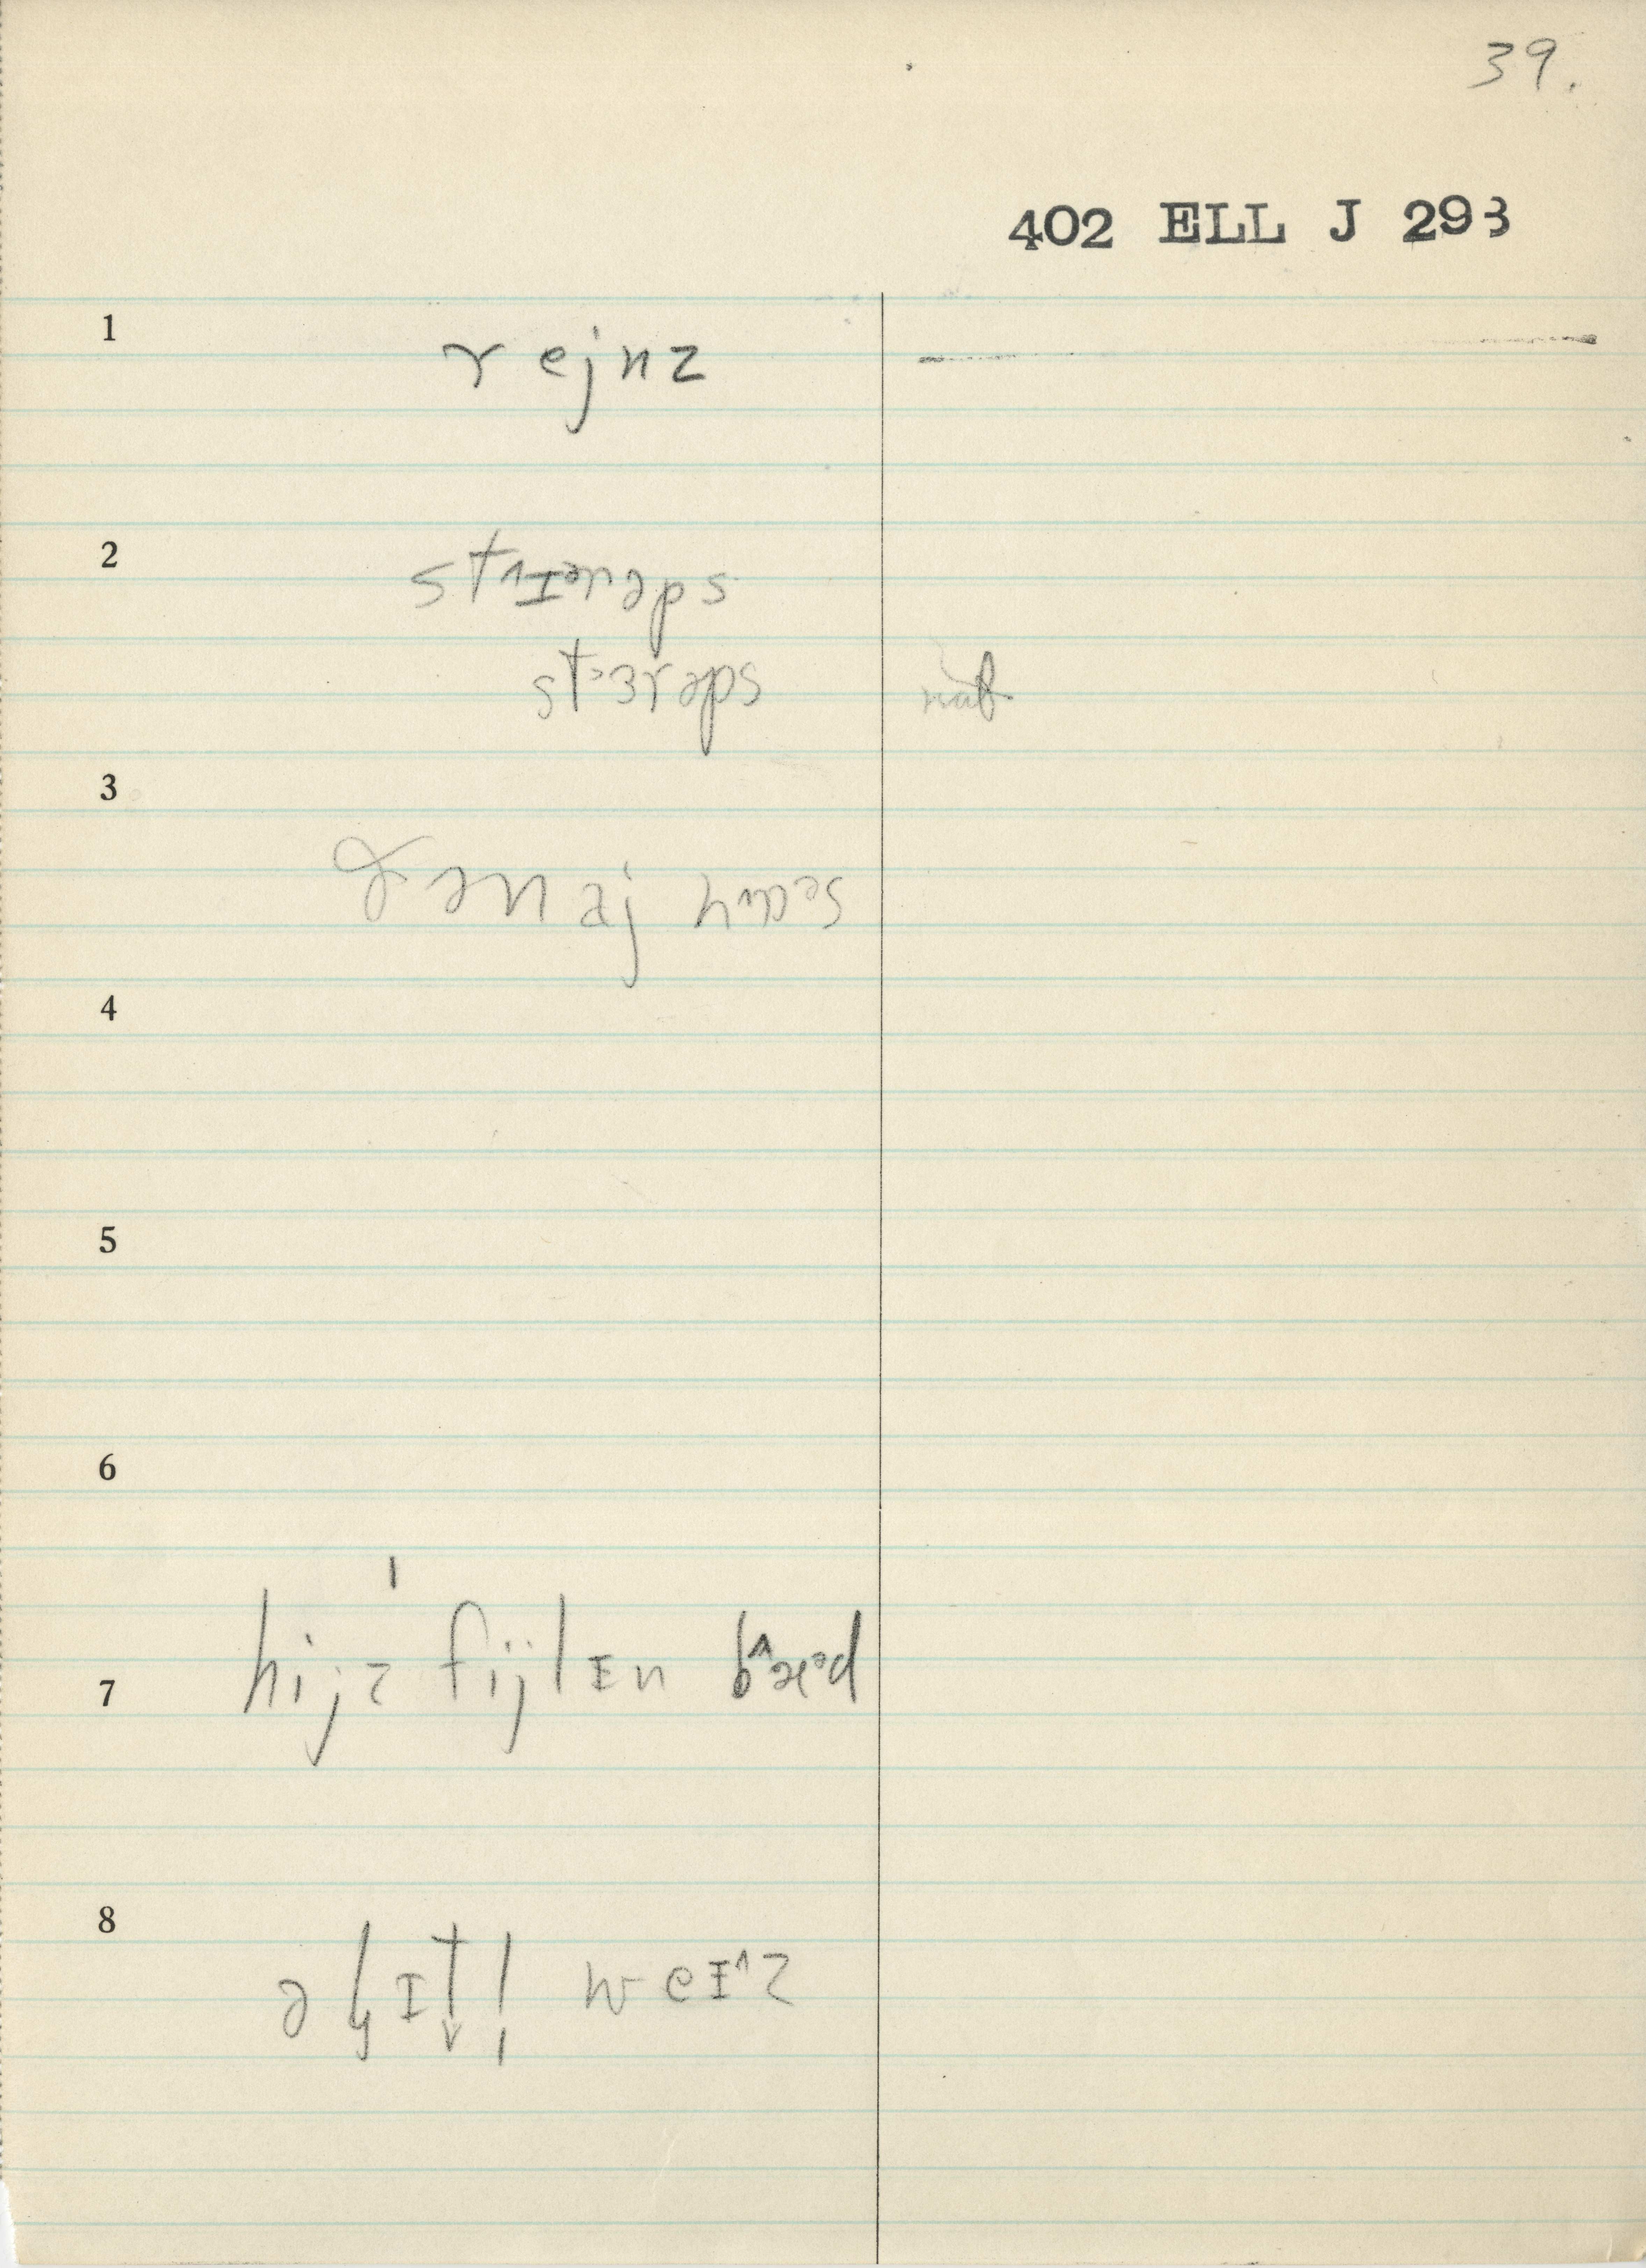 39.
402 ELL J 293
1
rejnz
2
st ərəps
st³ɜrəps nat.
3
ðə naj hɔəs
4
5
6
7
hijz fijlɪn bæəd
8
ə lɪt̬l̩ weɪ^z